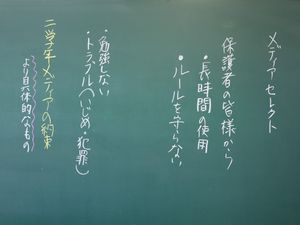 メディアセレクト
保護者の皆様から
・長時間の使用
・ルールを守らない
・勉強しない
・トラブル(いじめ・犯罪)
二学年メディアの約束
より具体的なもの